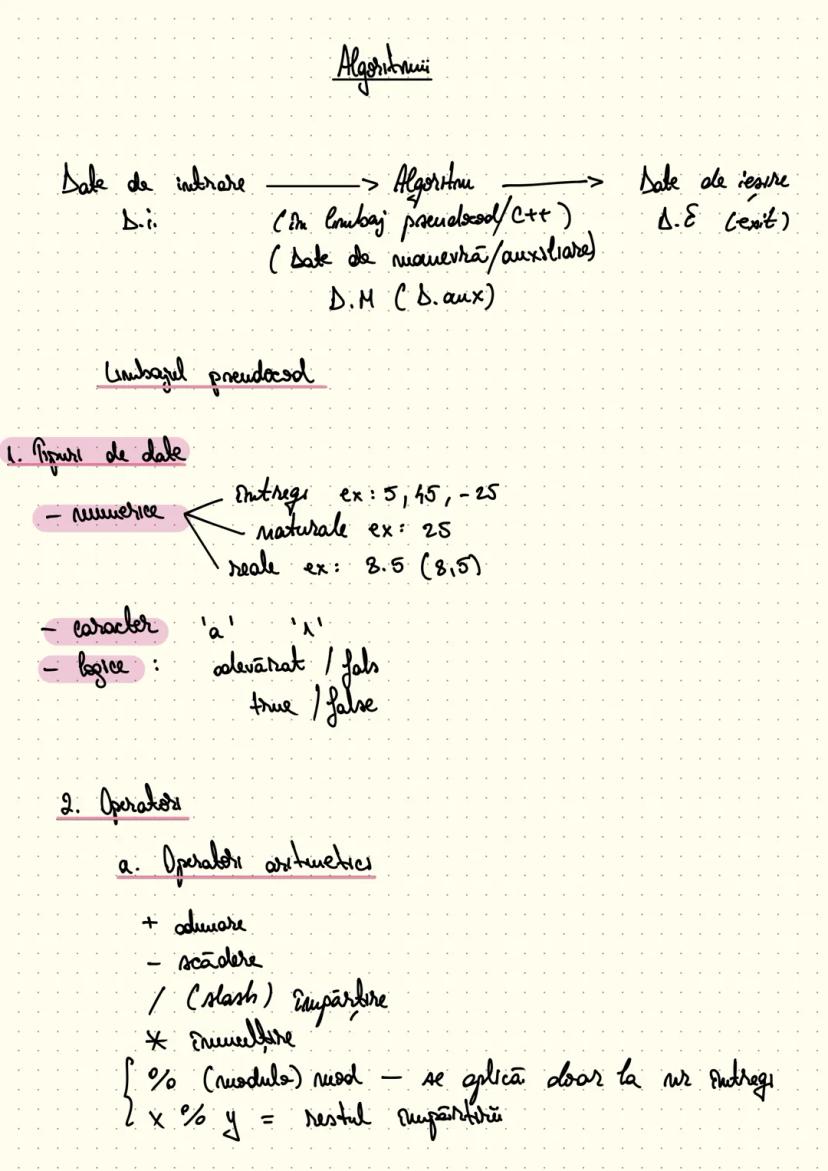 Algoritmii
Date de intrare ——> Algoritm ——> Date de ieșire
D.i. (în limbaj pseudocod/C++) D.E (exit)
(Date de manevră/auxiliare)
D.M (D.aux)
Limbajul pseudocod
1. Tipuri de date
- numerice
întregi ex: 5, 45, -25
naturale ex: 25
reale ex: 8.5 (8,5)
- caracter 'a' '1'
- logice : adevărat / fals
true / false
2. Operatori
a. Operatori aritmetici
+ adunare
- scădere
/ (slash) împărțire
* înmulțire
% (modulo) mod — se aplică doar la nr întregi
x % y = restul împărțirii